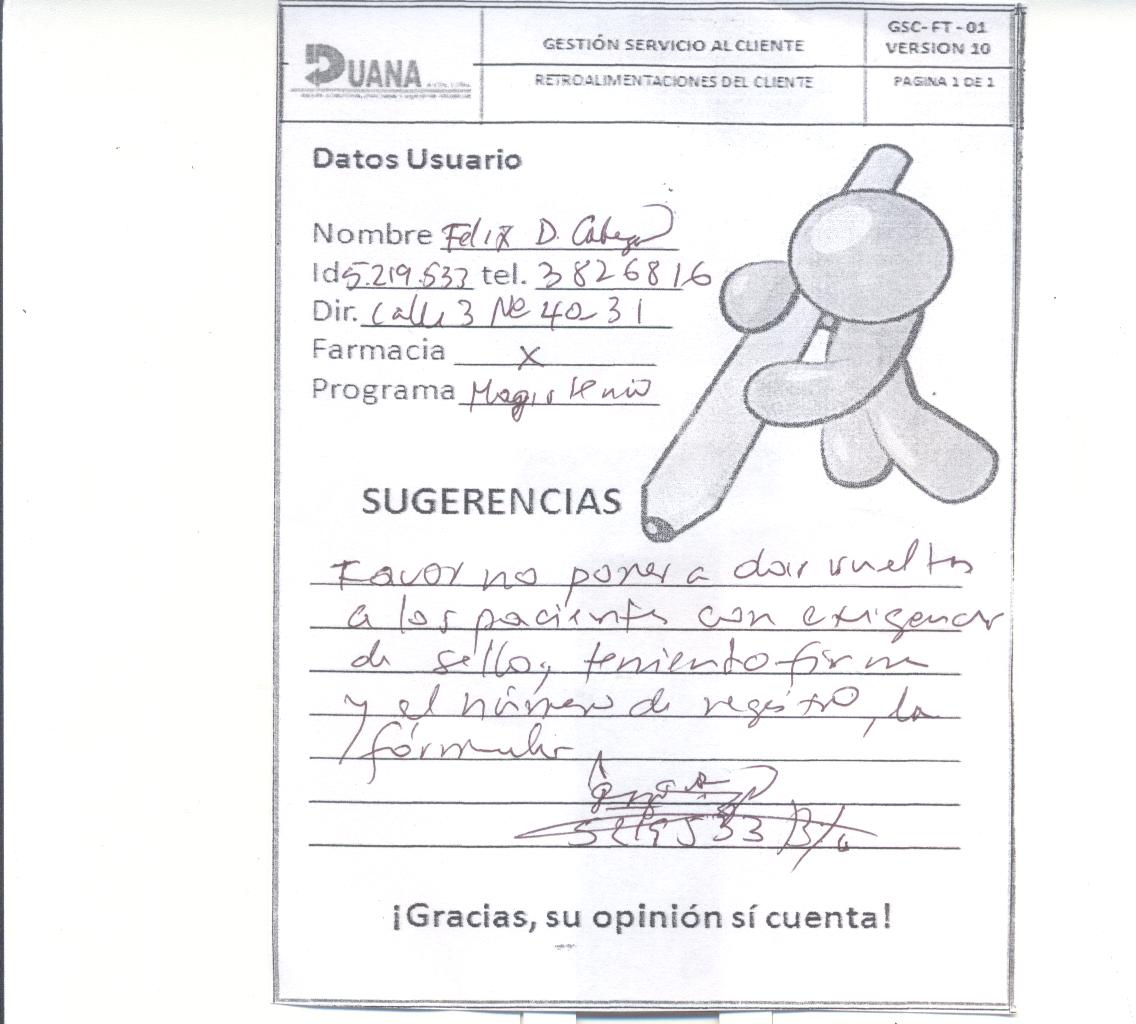 DUANA
GESTIÓN SERVICIO AL CLIENTE
GSC-FT-01
VERSION 10
RETROALIMENTACIONES DEL CLIENTE
PAGINA 1 DE 1
Datos Usuario
Nombre Felix D.
Id 5.219.533 tel. 3826816
Dir. Calle 3 Nº 40-31
Farmacia X
Programa Magisterio
SUGERENCIAS
Favor no poner a dar vueltas
a los pacientes con exigencias
de sello, teniendo firma
y el número de registro, la
fórmula
5219533 B/
¡Gracias, su opinión sí cuenta!